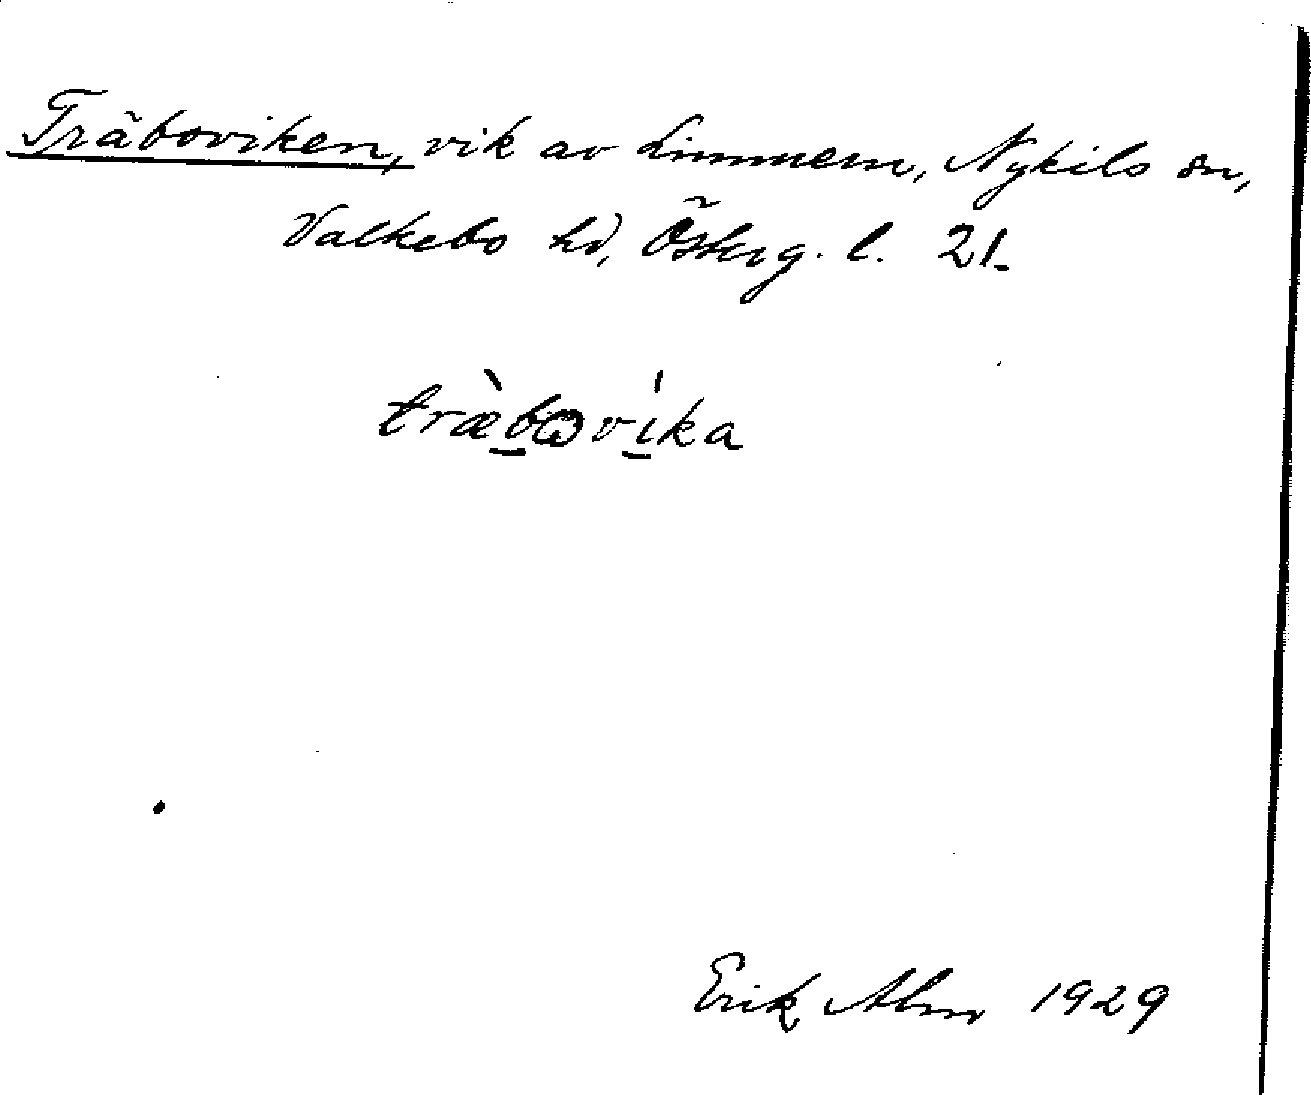 Träboviken, vik av Limmern, Nykils sn,
Valkebo hd, Österg. l. 21.
træ̀bωvíka
Erik Abm 1929